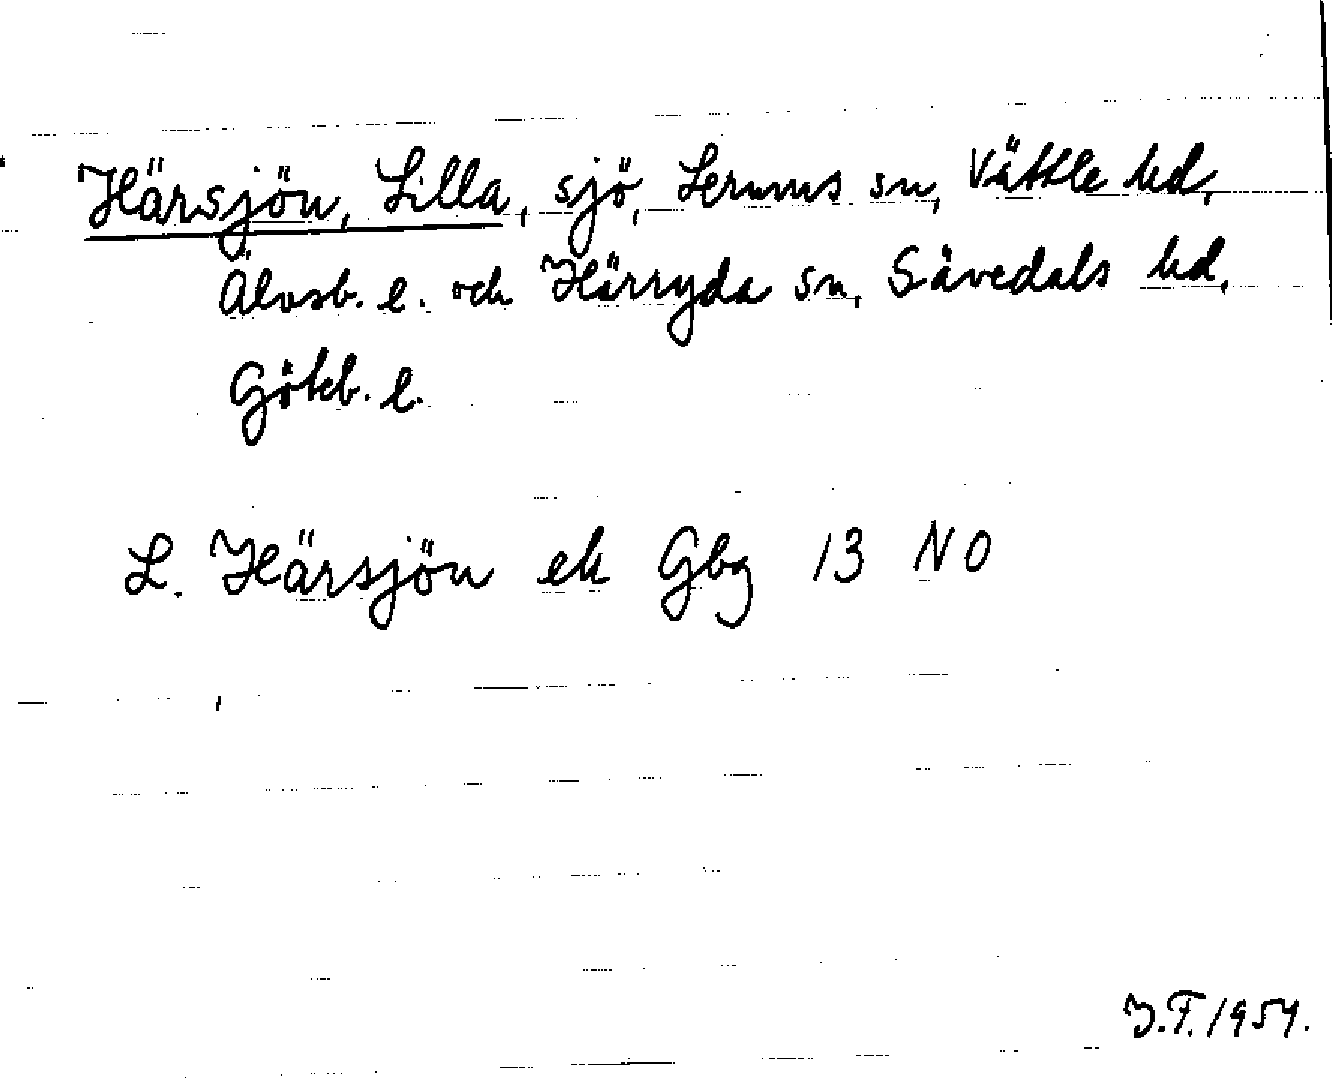 Härsjön, Lilla, sjö, Lerums sn, Vättle hd,
Älvsb. l. och Härryda sn, Sävedals hd,
Göteb. l.
L. Härsjön ek Gbg 13 NO
J.F. 1954.